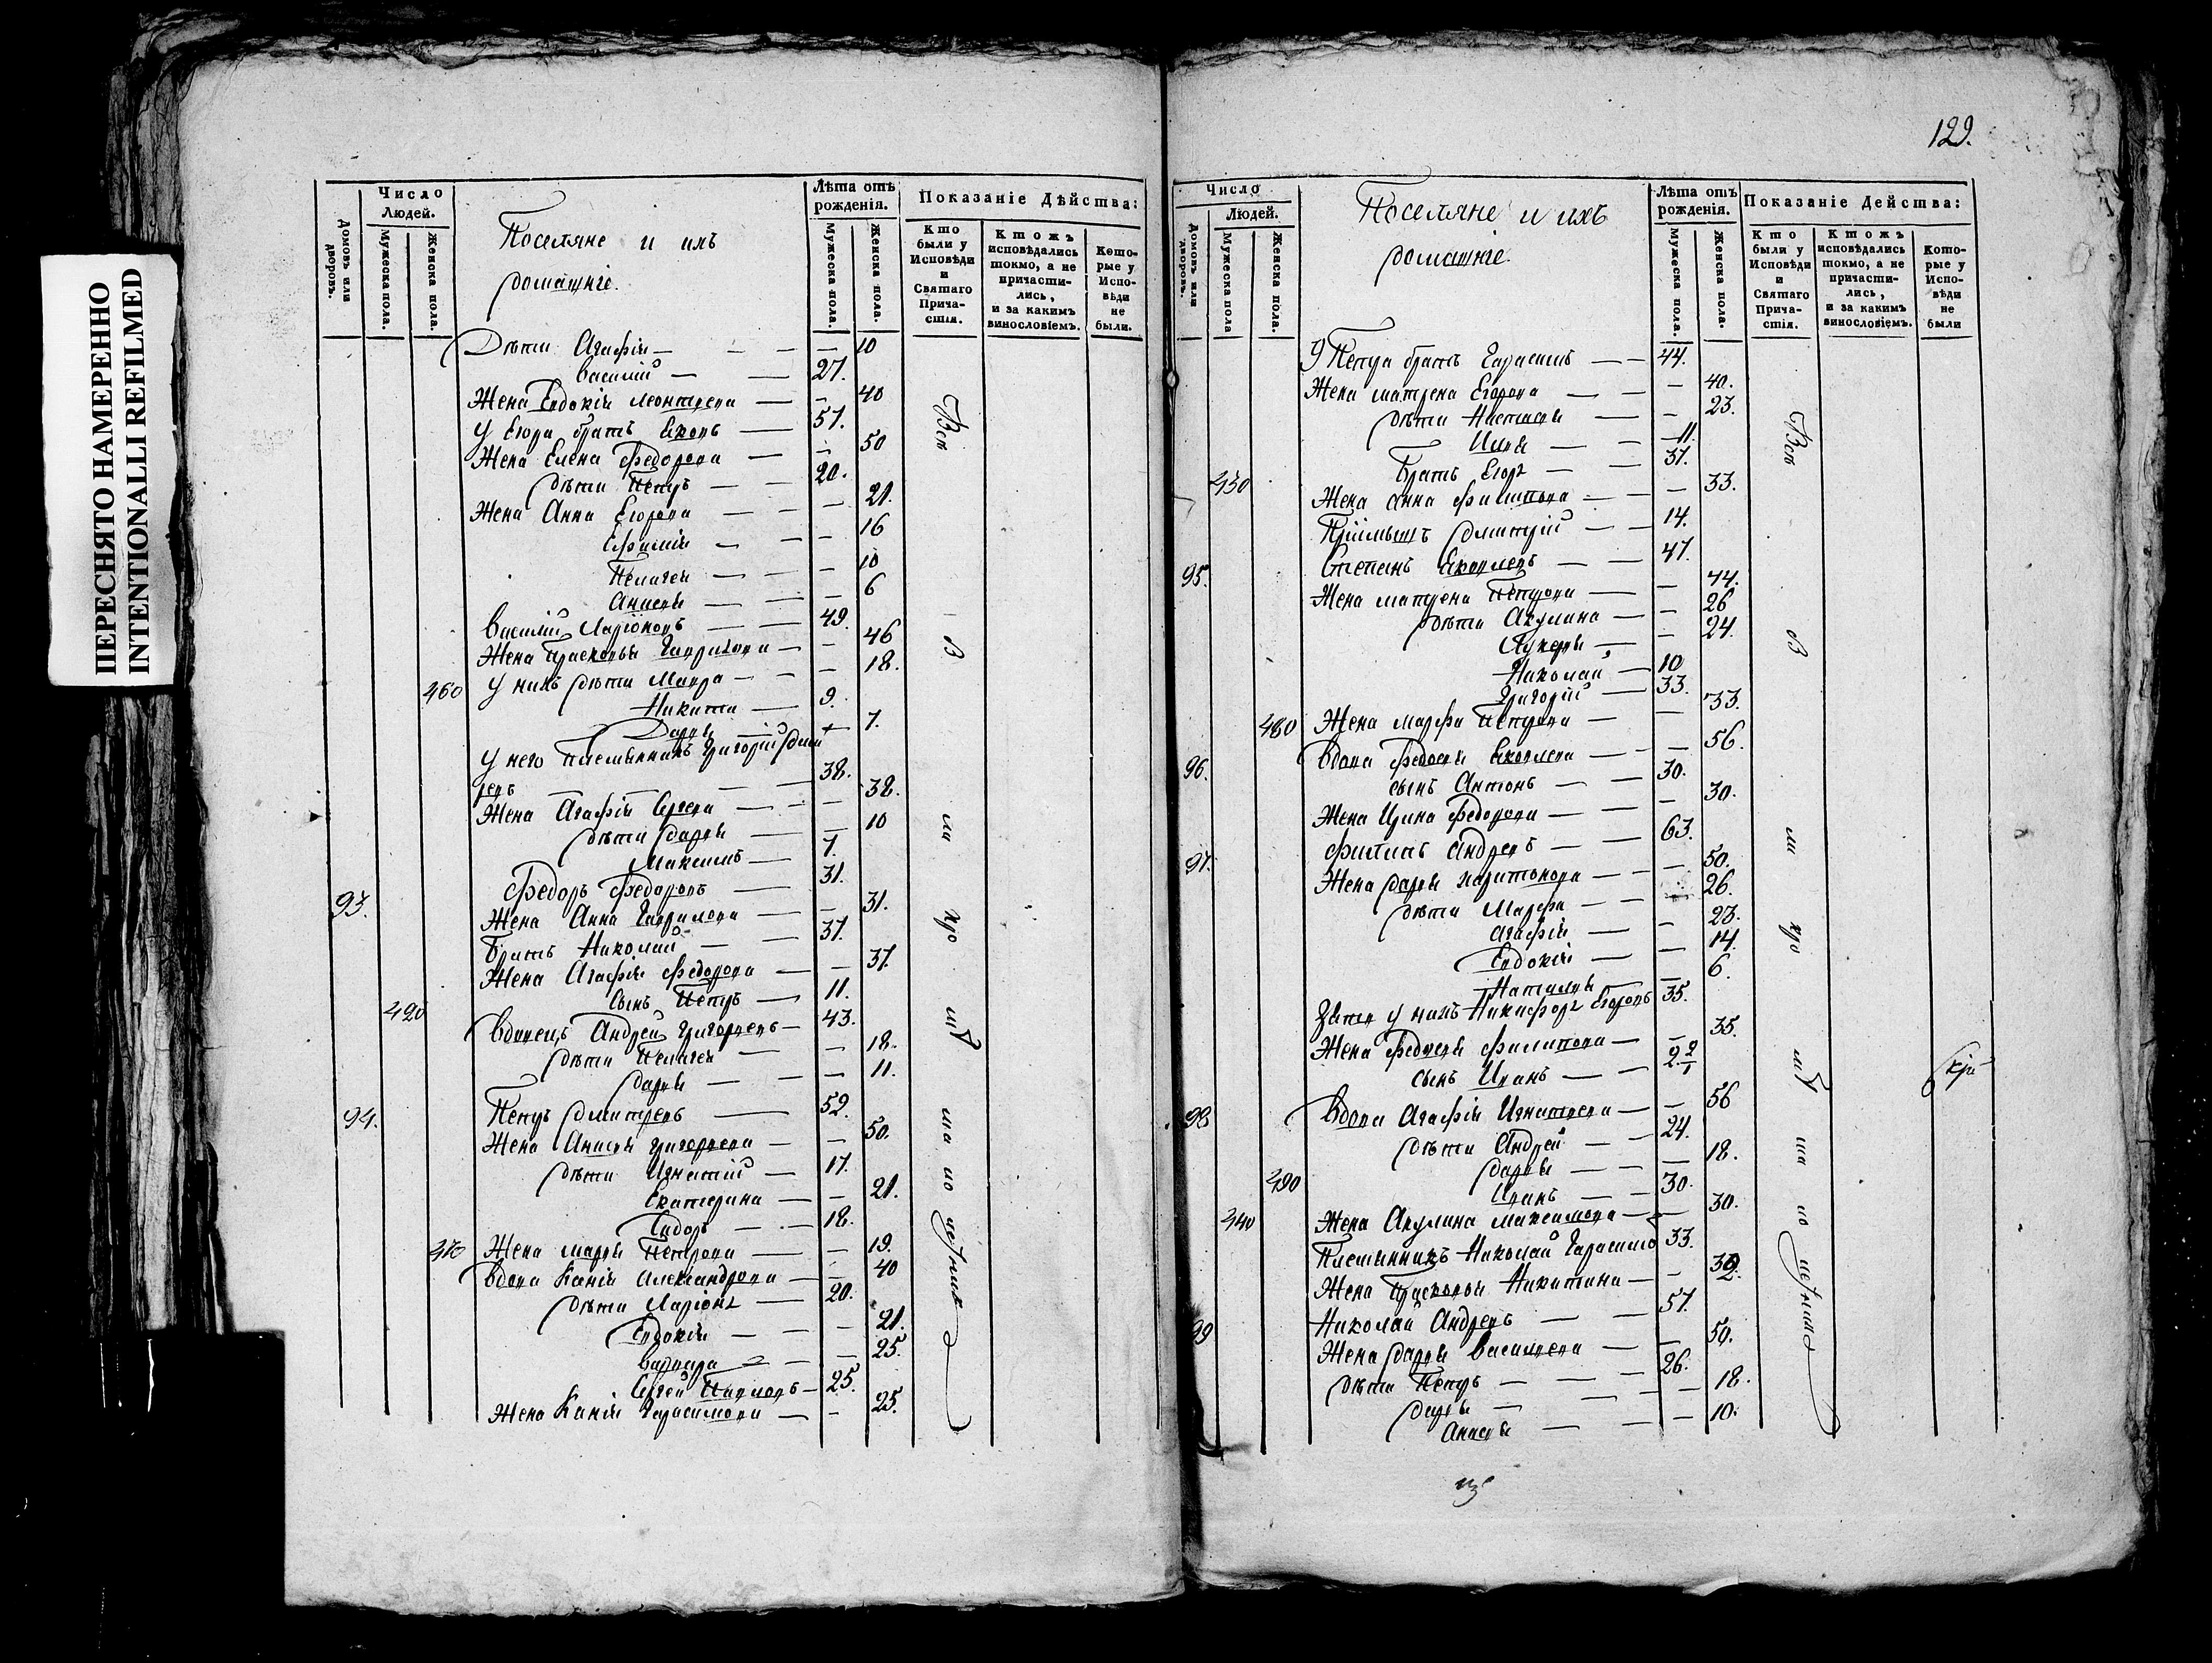 ПЕРЕСНЯТО НАМЕРЕННО
INTENTIONALLI REFILMED
Число
Людей.
Домовъ или дворовъ.
Мужеска пола.
Женска пола.
Поселяне и ихъ
домашніе.
Лѣта отъ
рожденія.
Мужеска пола.
Женска пола.
Показаніе Дѣйства:
Кто
были у
Исповѣди
и
Святаго
Прича-
стія.
Ктожъ
исповѣдались
токмо, а не
причасти-
лись,
и за какимъ
винословіемъ.
Кото-
рые у
Испо-
вѣди
не
были.
Дѣти Агафія — 10
Василий — 27.
Жена Евдокія Леонтьева — 40
У Егора братъ Яковъ — 57.
Жена Елена Федорова — 50
дѣти Петръ — 20.
Жена Анна Егорова — 21.
Ефимія — 16
Пелагея — 10
Анисья — 6
Василий Ларіоновъ — 49.
Жена Прасковья Гаврилова — 46
460 У нихъ дѣти Мавра — 18.
Никита — 9.
Дарья — 7.
У него племянникъ Григорій
38.
Жена Агафія — 38.
дѣти Дарья — 10
Максимъ — 7.
93. Федоръ Федоровъ — 31.
Жена Анна Гаврилова — 31.
Братъ Николай — 37.
Жена Агафія Федорова — 37.
сынъ Петръ — 11.
420 Вдовецъ Андрей Григорьевъ — 43.
дѣти Пелагея — 18.
Дарья — 11.
94. Петръ Дмитревъ — 52.
Жена Анисья Григорьева — 50.
дѣти Игнатій — 17.
Екатерина — 21.
Сидоръ — 18.
470 Жена Марья Петрова — 19.
Вдова Ксенія Александрова — 40
дѣти Ларіонъ — 20.
Евдокія — 21.
Варвара — 25.
Сергей — 25.
Жена Ксенія Гарасимова — 25.
Всѣ
129.
Число
Людей.
Домовъ или дворовъ.
Мужеска пола
Женска пола.
Поселяне и ихъ
домашніе.
Лѣта отъ
рожденія.
Мужеска пола.
Женска пола.
Показаніе Действа:
Кто
были у
Исповѣди
и
Святаго
Прича-
стія.
Ктожъ
исповѣдались
токмо, а не
причасти-
лись,
и за какимъ
винословіемъ.
Кото-
рые у
Испо-
вѣди
не
были
У Петра братъ Гарасимъ — 44.
Жена Матрена Егорова — 40.
дѣти Настасья — 23.
Илья — 11.
430 Братъ Егоръ — 37.
Жена Анна Филипова — 33.
Пріимышъ Дмитрій — 14.
95. Степанъ Яковлевъ — 47.
Жена Матрена Петрова — 44.
дѣти Акулина — 26
Лукерья — 24.
Николай — 10
Григорій — 33.
480 Жена Марфа Петрова — 33.
96. Вдова Федосья Яковлева — 56.
сынъ Антонъ — 30.
Жена Ирина Федорова — 30.
97. Филипъ Андревъ — 63.
Жена Дарья Харитонова — 50.
дѣти Марфа — 26.
Агафія — 23.
Евдокія — 14.
Наталья — 6.
Зять у нихъ Никифоръ Егоровъ 35.
Жена Федосья Филипова — 35.
сынъ Иванъ —
98 Вдова Агафія Игнатьева — 56
дѣти Андрей — 24.
490 Дарья — 18.
440 Иванъ — 30.
Жена Акулина Максимова — 30.
Племянникъ Николай Гарасимо 33.
Жена Прасковья Никитина —
99 Николай Андревъ — 57.
Жена Дарья Васильева — 50.
дѣти Петръ — 26.
Дарья — 18.
Анисья — 10.
Всѣ